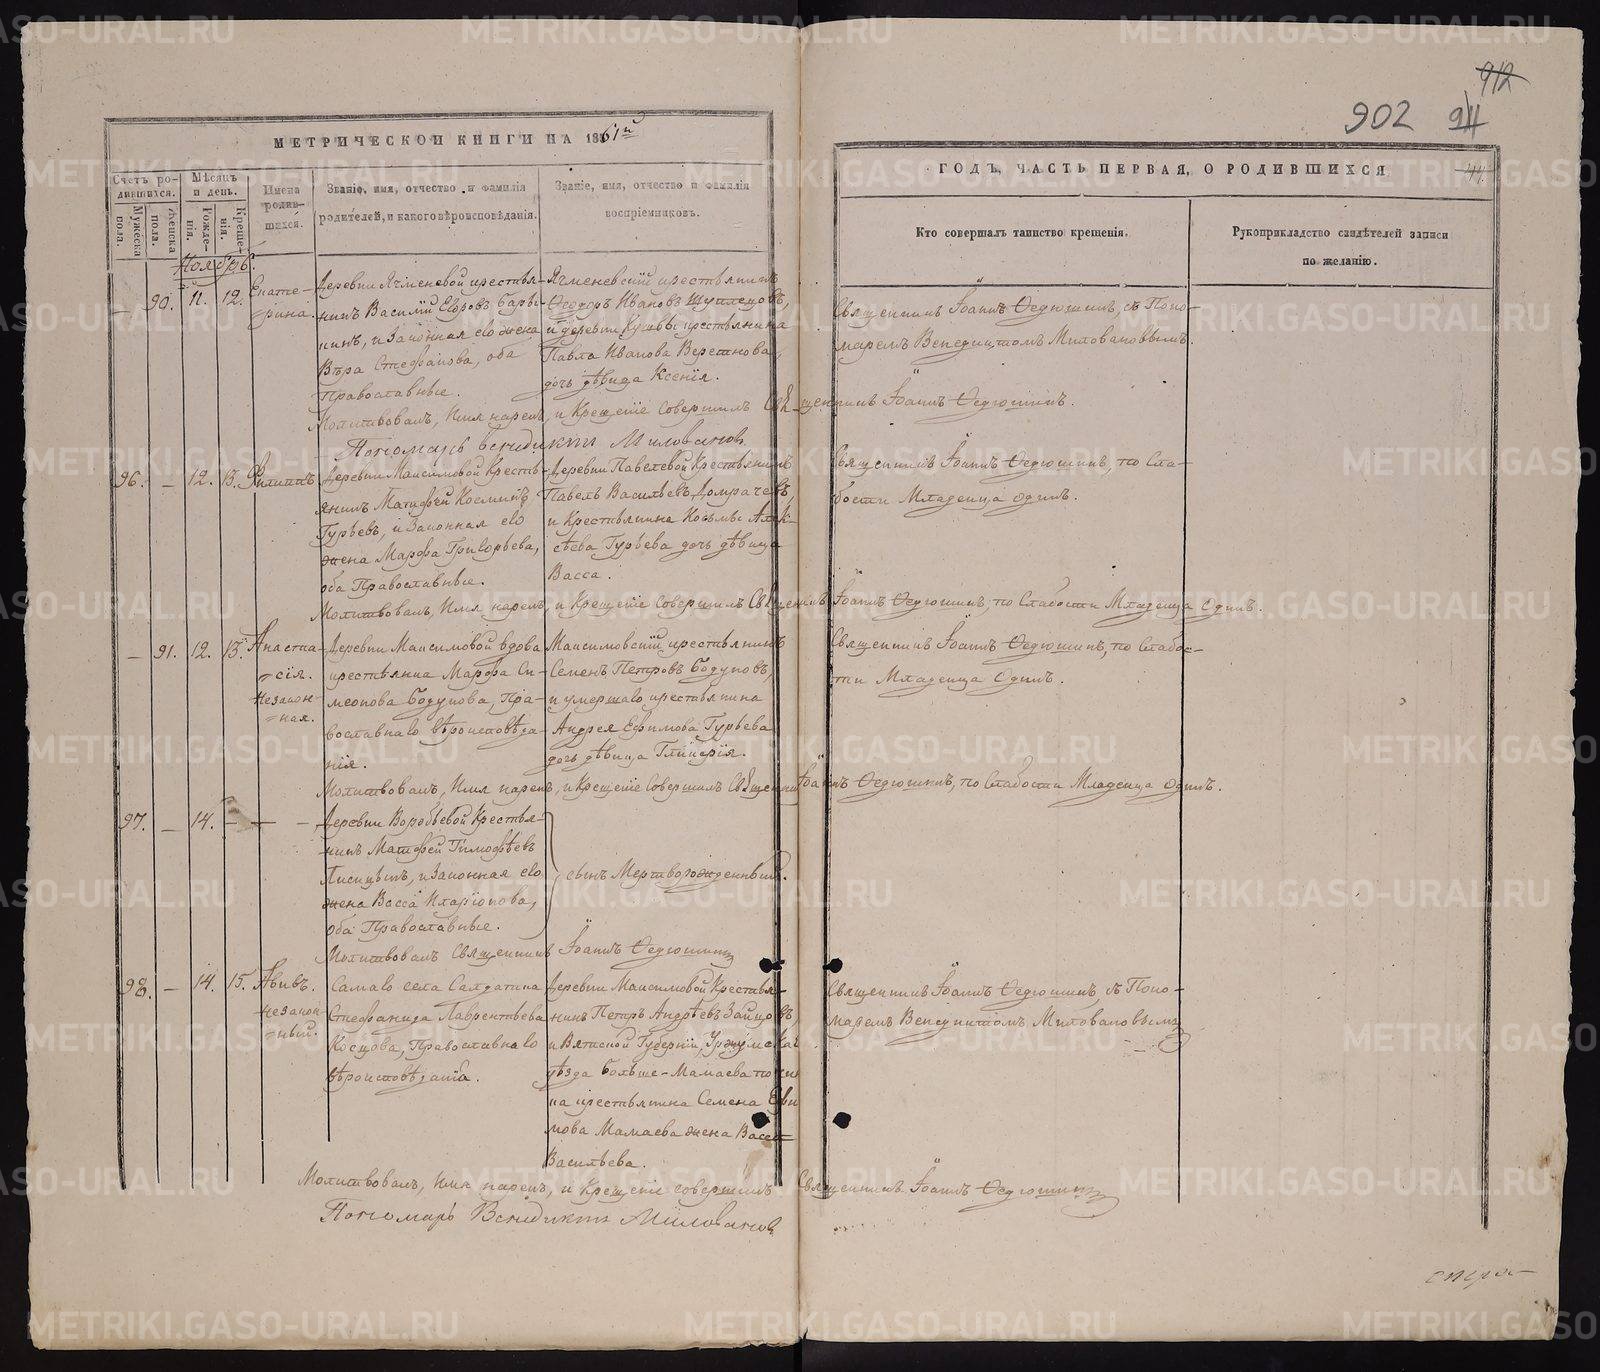 912
902 911
МЕТРИЧЕСКОЙ КНИГИ НА 1861й
ГОДЪ, ЧАСТЬ ПЕРВАЯ, О РОДИВШИХСЯ
Счетъ ро-
дившихся.
Мужеска
пола.
Женска
пола.
Мѣсяцъ
и день.
Рожде-
нія.
Креще-
нія.
Имена
родив-
шихся.
Званіе, имя, отчество и фамилія
родителей, и какого вѣроисповѣданія.
Званіе, имя, отчество и фамилія
воспріемниковъ.
Кто совершалъ таинство крещенія.
Рукоприкладство свидѣтелей записи
по желанію.
Ноябрь.
— 90. 11. 12. Екате-
рина.
Деревни Ячменевой крестья-
нинъ Василій Егоровъ
и Законная его жена
Вѣра Стефанова, оба
Православные.
Ячменевскій крестьянинъ
Ѳеодоръ Ивановъ
и деревни крестьянина
Павла Иванова
дочь дѣвица Ксенія.
Священникъ Іоаннъ Ѳедюшинъ, съ Поно-
маремъ Венедиктомъ Миловановымъ.
Молитвовалъ, Имя нарекъ, и Крещеніе совершилъ Священникъ Іоаннъ Ѳедюшинъ.
Пономарь Венедиктъ Миловановъ
96. — 12. 13. Филиппъ
Деревни Максимовой Кресть-
янинъ Матѳей Косминъ
Гурьевъ, и Законная его
жена Марѳа Григорьева,
оба Православные.
Деревни Павелевой Крестьянинъ
Павелъ Васильевъ Домрачевъ,
и Крестьянина Козьмы Алек-
сѣева Гурьева дочь дѣвица
Васса.
Священникъ Іоаннъ Ѳедюшинъ, по Сла-
бости Младенца одинъ.
Молитвовалъ, Имя нарекъ, и Крещеніе Совершилъ Священникъ Іоаннъ Ѳедюшинъ, по Слабости Младенца одинъ.
— 91. 12. 13. Анаста-
сія.
Незакон-
ная.
Деревни Максимовой вдова
крестьянка Марѳа Си-
меонова Бодунова, Пра-
вославнаго вѣроисповѣда-
нія.
Максимовскій крестьянинъ
Семенъ Петровъ Бодуновъ,
и умершаго крестьянина
Андрея Ефимова Гурьева
дочь дѣвица Гликерія.
Священникъ Іоаннъ Ѳедюшинъ, по Слабос-
ти Младенца одинъ.
Молитвовалъ, Имя нарекъ, и Крещеніе Совершилъ Священникъ Іоаннъ Ѳедюшинъ, по Слабости Младенца одинъ.
97. — 14. — —
Деревни Воробьевой Крестья-
нинъ Матѳей Тимоѳѣевъ
Лисицынъ, и Законная его
жена Васса Иларіонова,
оба Православные.
сынъ Мертворожденный.
Молитвовалъ Священникъ Іоаннъ Ѳедюшинъ
98. — 14. 15. Авивъ.
Незакон-
ный.
Самаго села Салдатка
Стефанида Лаврентьева
Косцова, Православнаго
вѣроисповѣданія.
Деревни Максимовой Крестья-
нинъ Петръ Андрѣевъ Зайцовъ,
и Вятской Губерніи, Уржумскаго
уѣзда Больше-Мамаева почин
ка крестьянина Семена Ефи
мова Мамаева жена Васса
Васильева.
Священникъ Іоаннъ Ѳедюшинъ, съ Поно-
маремъ Венедиктомъ Миловановымъ
Молитвовалъ, Имя нарекъ, и Крещеніе совершилъ Священникъ Іоаннъ Ѳедюшинъ
Пономарь Венедиктъ Миловановъ
METRIKI.GASO-URAL.RU